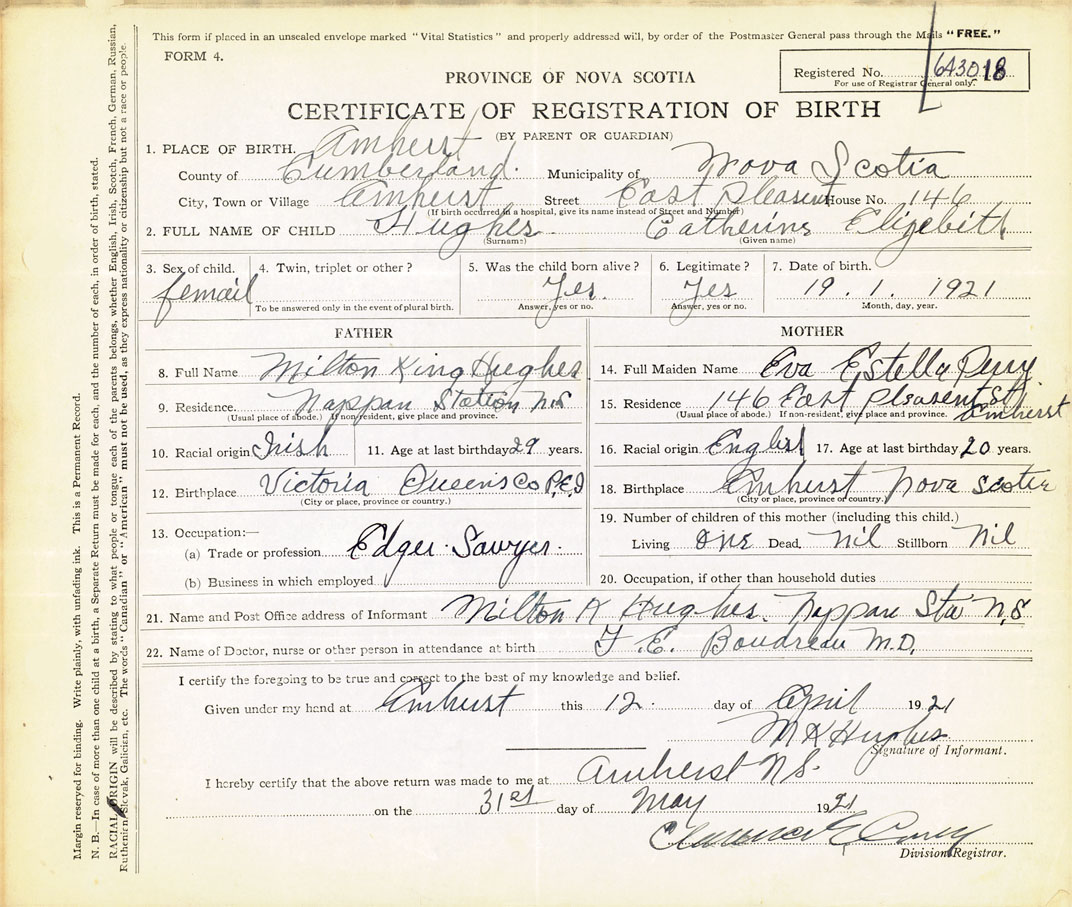 This form if placed in an unsealed envelope marked "Vital Statistics" and properly addressed will, by order of the Postmaster General pass through the Mails "FREE."
FORM 4.
Registered No. 643018
For use of Registrar General only.
PROVINCE OF NOVA SCOTIA
CERTIFICATE OF REGISTRATION OF BIRTH
(BY PARENT OR GUARDIAN)
1. PLACE OF BIRTH. Amherst
County of Cumberland. Municipality of Nova Scotia
City, Town or Village Amhurst Street East Pleasent House No. 146
(If birth occurred in a hospital, give its name instead of Street and Number)
2. FULL NAME OF CHILD Hughes Catherine Elizebith
(Surname) (Given name)
3. Sex of child. 4. Twin, triplet or other? 5. Was the child born alive? 6. Legitimate? 7. Date of birth.
femail Yes. Yes 19. 1. 1921
To be answered only in the event of plural birth. Answer, yes or no. Answer, yes or no. Month, day, year.
FATHER
8. Full Name Milton King Hughes
9. Residence. Nappan Station N.S
(Usual place of abode.) If non-resident, give place and province.
10. Racial origin Irish 11. Age at last birthday 29 years.
12. Birthplace Victoria Queens Co P.E.I
(City or place, province or country.)
13. Occupation:—
(a) Trade or profession Edger Sawyer.
(b) Business in which employed
MOTHER
14. Full Maiden Name Eva Estella Perry
15. Residence 146 East Pleasent St Amherst
(Usual place of abode.) If non-resident, give place and province.
16. Racial origin English 17. Age at last birthday 20 years.
18. Birthplace Amhurst Nova Scotia
(City or place, province or country.)
19. Number of children of this mother (including this child.)
Living one Dead. Nil Stillborn Nil
20. Occupation, if other than household duties
21. Name and Post Office address of Informant Milton K Hughes. Nappan Sta N.S
22. Name of Doctor, nurse or other person in attendance at birth F. E. Boudreau M.D.
I certify the foregoing to be true and correct to the best of my knowledge and belief.
Given under my hand at Amhurst this 12. day of April 1921
M K Hughes
Signature of Informant.
I hereby certify that the above return was made to me at Amherst N.S.
on the 31st day of May 1921
Clarence E
Division Registrar.
Margin reserved for binding. Write plainly, with unfading ink. This is a Permanent Record.
N. B.—In case of more than one child at a birth, a Separate Return must be made for each, and the number of each, in order of birth, stated.
RACIAL ORIGIN will be described by stating to what people or tongue each of the parents belongs, whether English, Irish, Scotch, French, German, Russian,
Ruthenian, Slovak, Galician, etc. The words "Canadian" or "American" must not be used, as they express nationality or citizenship but not a race or people.